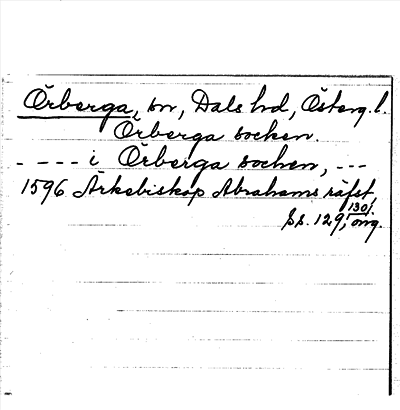 Örberga, sn, Dals hd, Österg. l.
Örberga socken.
- - - - i Örberga sochen, - - -
1596 Ärkebiskop Abrahams räfst,
ss. 129, 130, orig.